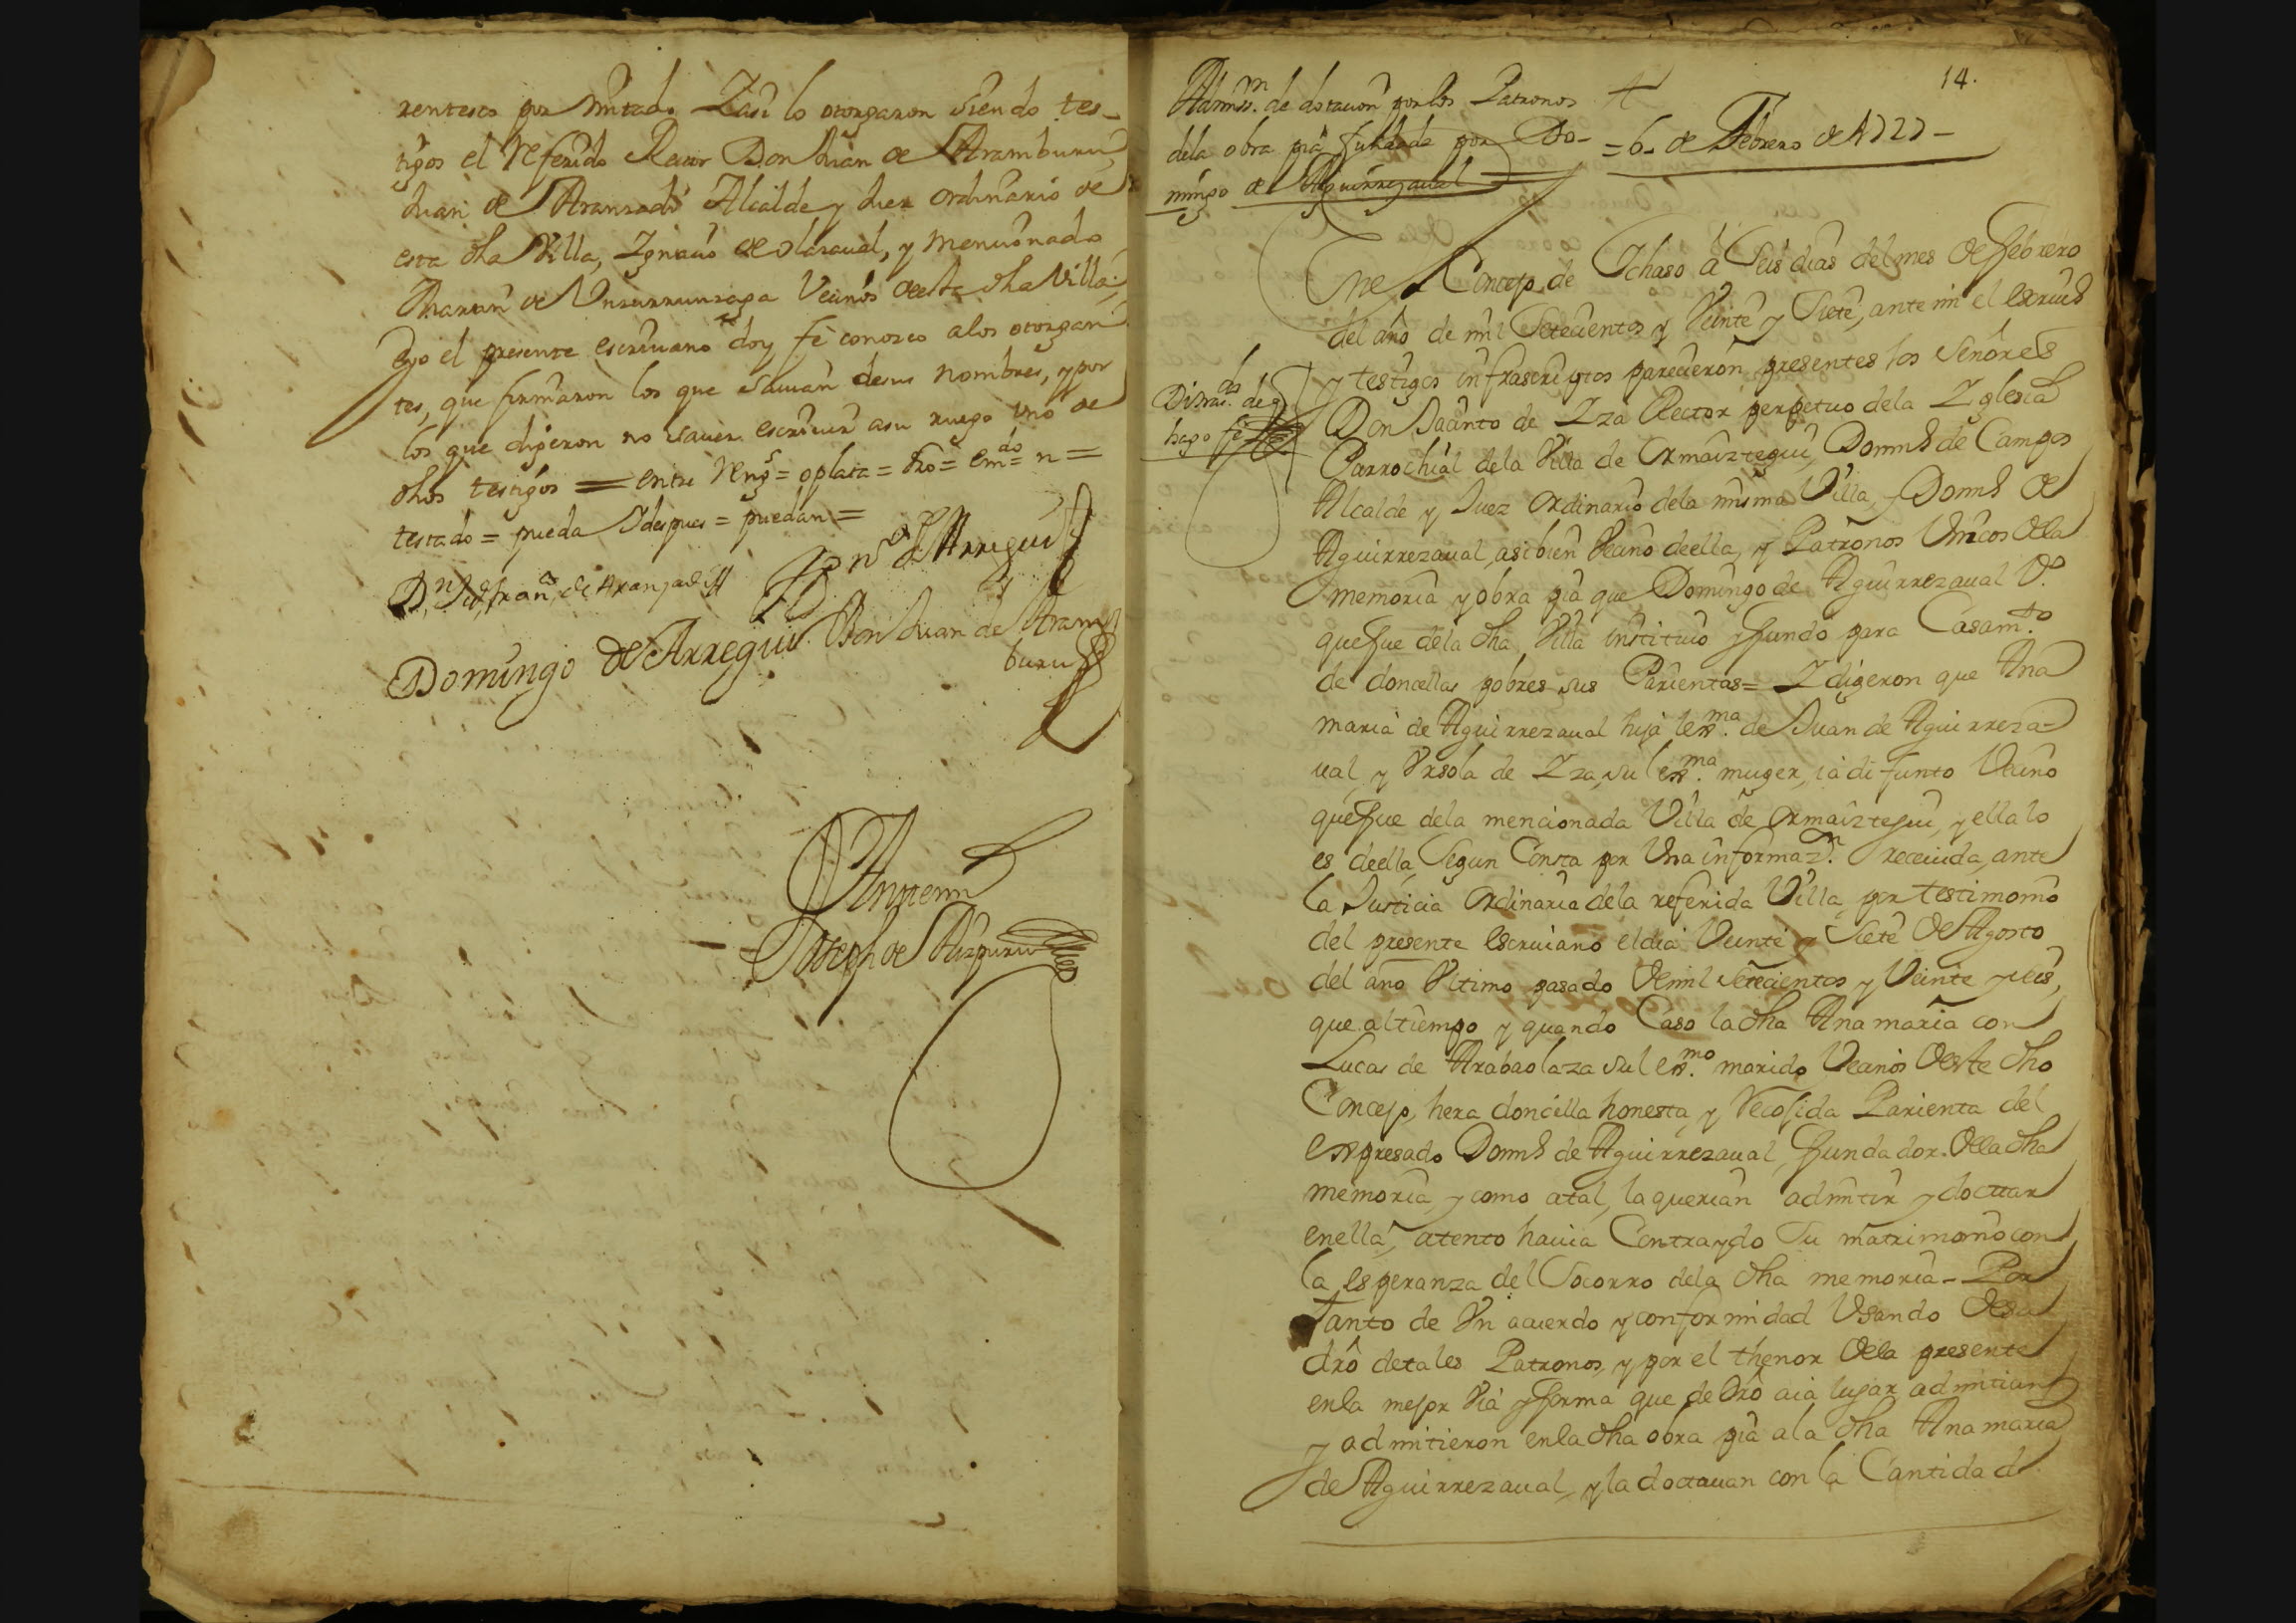 rentesco por mitad. Y asi lo otorgaron siendo tes-
tigos el referido Retor Don Juan de Aramburu,
Juan de Aranzadi Alcalde y Juez ordinario de
esta dha Villa, Ygnacio de Olazaual, y mencionado
Martin de Unsurrunzaga Vecinos deesta dha Villa,
Eyo el presente escriuano doy fe conozco alos otorgan
tes, que firmaron los que sauian desus nombres, y por
los que digeron no sauer escriuir asu ruego uno de
dhos testigos = entre Reng.s = oplata = dro = em.do = n =
testado = pueda despues = puedan =
D.n Ju.o fran.co de Aranzadi
Jo n de Arregui
Domingo de Arregui Don Juan de Aram
buru
Antemi
Joseph de Aizpuru
14.
Admiss.n de dotacion por los Patronos
dela obra pia fundada por Do-
mingo de Aguirrezaual
= 6. de Febrero de 1727 -
Enel Concejo de Ychaso á Seis dias delmes de febrero
del año de mil Setecientos y Veinte y Siete, ante mi el escriu.o
y testigos infrascriptos parecieron presentes los Señores
Don Jacinto de Yza Rector perpetuo dela Yglesia
Parrochial dela Villa de Ormaiztegui, Dom.o de Campos
Alcalde y Juez ordinario dela misma Villa, y Dom.o de
Aguirrezaual, asibien Vecino deella, y Patronos Unicos dela
memoria y obra pia que Domingo de Aguirrezaual V.o
quefue dela dha Villa instituio y fundó para Casam.to
de doncellas pobres sus Parientas = Y digeron que Ana
maria de Aguirrezaual hija lexma. de Juan de Aguirreza=
ual, y Ursola de Yza, su lexma. muger, ia difunto Vecino
quefue dela mencionada Villa de Ormaiztegui, y ella lo
es deella, Segun Consta por Una informaz.n receuida, ante
la Justicia Ordinaria dela referida Villa, por testimonio
del presente escriuano eldia Veinte y Siete de Agosto
del año Vltimo pasado demil Setecientos y Veinte y seis,
que altiempo y quando Caso la dha Ana maria con
Lucas de Arabaolaza su lexmo. marido Vecinos deeste dho
Concejo, hera doncella honesta, y recojida Parienta del
expresado Dom.o de Aguirrezaual, fundador dela dha
memoria, y como atal, la querian admitir y doctar
enella, atento hauia Contraydo Su matrimonio con
la esperanza del Socorro dela dha memoria - Por
tanto de Vn acuerdo y conformidad Vsando desu
dro detales Patronos, y por el thenor dela presente
enla mejor via y forma que de dro aia lugar admitian
y admitieron enla dha obra pia ala dha Ana maria
de Aguirrezaual, y la doctauan con la Cantidad
hago fe